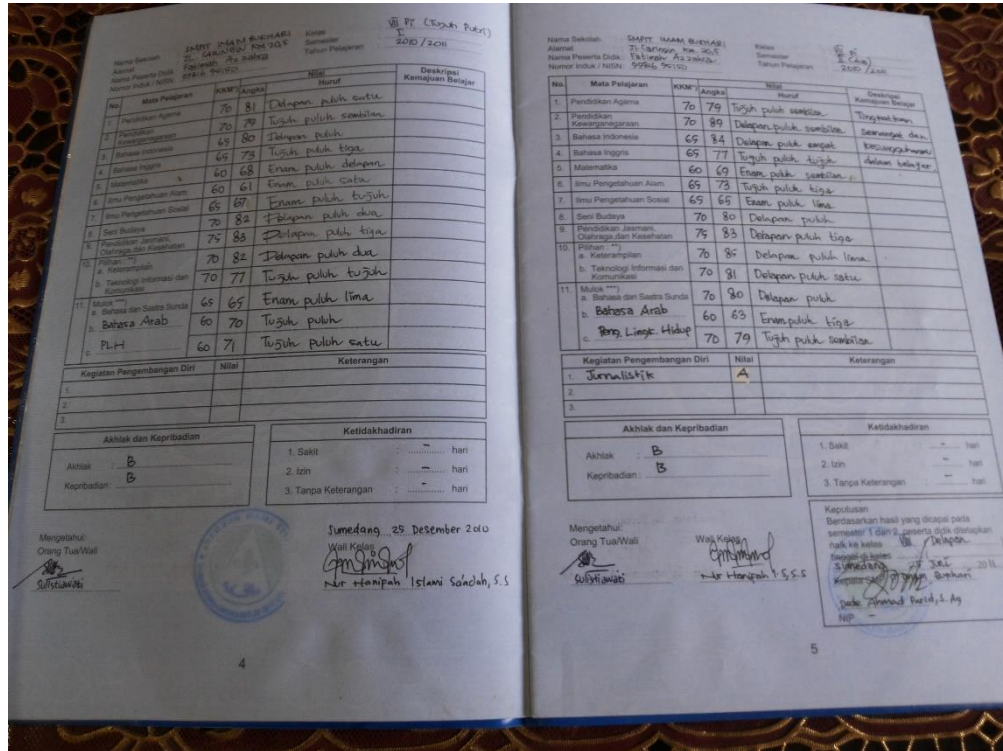 Nama Sekolah : SMPIT IMAM BUKHARI Kelas : VII Pi (Tujuh Putri)
Alamat : Jl. CARINGIN KM 20,5 Semester : I
Nama Peserta Didik : Fatimah Azzahra Tahun Pelajaran : 2010/2011
Nomor Induk / NISN
No. Mata Pelajaran KKM*) Nilai Deskripsi Kemajuan Belajar
Angka Huruf
1. Pendidikan Agama 70 81 Delapan puluh satu
2. Pendidikan Kewarganegaraan 70 79 Tujuh puluh sembilan
3. Bahasa Indonesia 65 80 Delapan puluh
4. Bahasa Inggris 65 73 Tujuh puluh tiga
5. Matematika 60 68 Enam puluh delapan
6. Ilmu Pengetahuan Alam 60 61 Enam puluh satu
7. Ilmu Pengetahuan Sosial 65 67 Enam puluh tujuh
8. Seni Budaya 70 82 Delapan puluh dua
9. Pendidikan Jasmani, Olahraga,dan Kesehatan 75 83 Delapan puluh tiga
10. Pilihan : **)
a. Keterampilan 70 82 Delapan puluh dua
b. Teknologi Informasi dan Komunikasi 70 77 Tujuh puluh tujuh
11. Mulok ***)
a. Bahasa dan Sastra Sunda 65 65 Enam puluh lima
b. Bahasa Arab 60 70 Tujuh puluh
c. PLH 60 71 Tujuh puluh satu
Kegiatan Pengembangan Diri Nilai Keterangan
1.
2.
3.
Akhlak dan Kepribadian
Akhlak : B
Kepribadian : B
Ketidakhadiran
1. Sakit : - hari
2. Izin : - hari
3. Tanpa Keterangan : - hari
Mengetahui:
Orang Tua/Wali
Sulistiawati
Sumedang, 25 Desember 2010
Wali Kelas
Nur Hanipah Islami Solachah, S.S
4
Nama Sekolah : SMPIT IMAM BUKHARI Kelas : VII Pi
Alamat : Jl. Caringin Km. 20,5 Semester : II (dua)
Nama Peserta Didik : Fatimah Azzahra Tahun Pelajaran : 2010/2011
Nomor Induk / NISN
No. Mata Pelajaran KKM*) Nilai Deskripsi Kemajuan Belajar
Angka Huruf
1. Pendidikan Agama 70 79 Tujuh puluh sembilan Tingkatkan
2. Pendidikan Kewarganegaraan 70 89 Delapan puluh sembilan semangat dan
3. Bahasa Indonesia 65 84 Delapan puluh empat kesungguhan
4. Bahasa Inggris 65 77 Tujuh puluh tujuh dalam belajar
5. Matematika 60 69 Enam puluh sembilan
6. Ilmu Pengetahuan Alam 65 73 Tujuh puluh tiga
7. Ilmu Pengetahuan Sosial 65 65 Enam puluh lima
8. Seni Budaya 70 80 Delapan puluh
9. Pendidikan Jasmani, Olahraga,dan Kesehatan 75 83 Delapan puluh tiga
10. Pilihan : **)
a. Keterampilan 70 85 Delapan puluh lima
b. Teknologi Informasi dan Komunikasi 70 81 Delapan puluh satu
11. Mulok ***)
a. Bahasa dan Sastra Sunda 70 80 Delapan puluh
b. Bahasa Arab 60 63 Enam puluh tiga
c. Peng. Lingk. Hidup 70 79 Tujuh puluh sembilan
Kegiatan Pengembangan Diri Nilai Keterangan
1. Jurnalistik A
2.
3.
Akhlak dan Kepribadian
Akhlak : B
Kepribadian : B
Ketidakhadiran
1. Sakit : - hari
2. Izin : - hari
3. Tanpa Keterangan : - hari
Mengetahui:
Orang Tua/Wali
Sulistiawati
Wali Kelas
Nur Hanipah I.S, S.S
Keputusan
Berdasarkan hasil yang dicapai pada
semester 1 dan 2, peserta didik ditetapkan
naik ke kelas VIII / Delapan
tinggal di kelas
Sumedang, 25 Juni 2011
Kepala Bukhari
Dade Ahmad Farid, S. Ag
NIP -
5